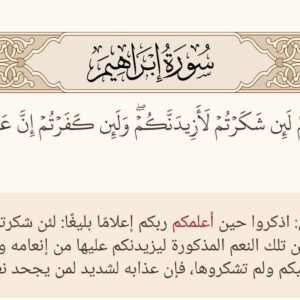 سُورَةُ إِبْرَاهِيمَ
لَئِن شَكَرۡتُمۡ لَأَزِيدَنَّكُمۡۖ وَلَئِن كَفَرۡتُمۡ إِنَّ
: اذكروا حين أعلمكم ربكم إعلامًا بليغًا: لئن شكرتم
تلك النعم المذكورة ليزيدنكم عليها من إنعامه
ولم تشكروها، فإن عذابه لشديد لمن يجحد